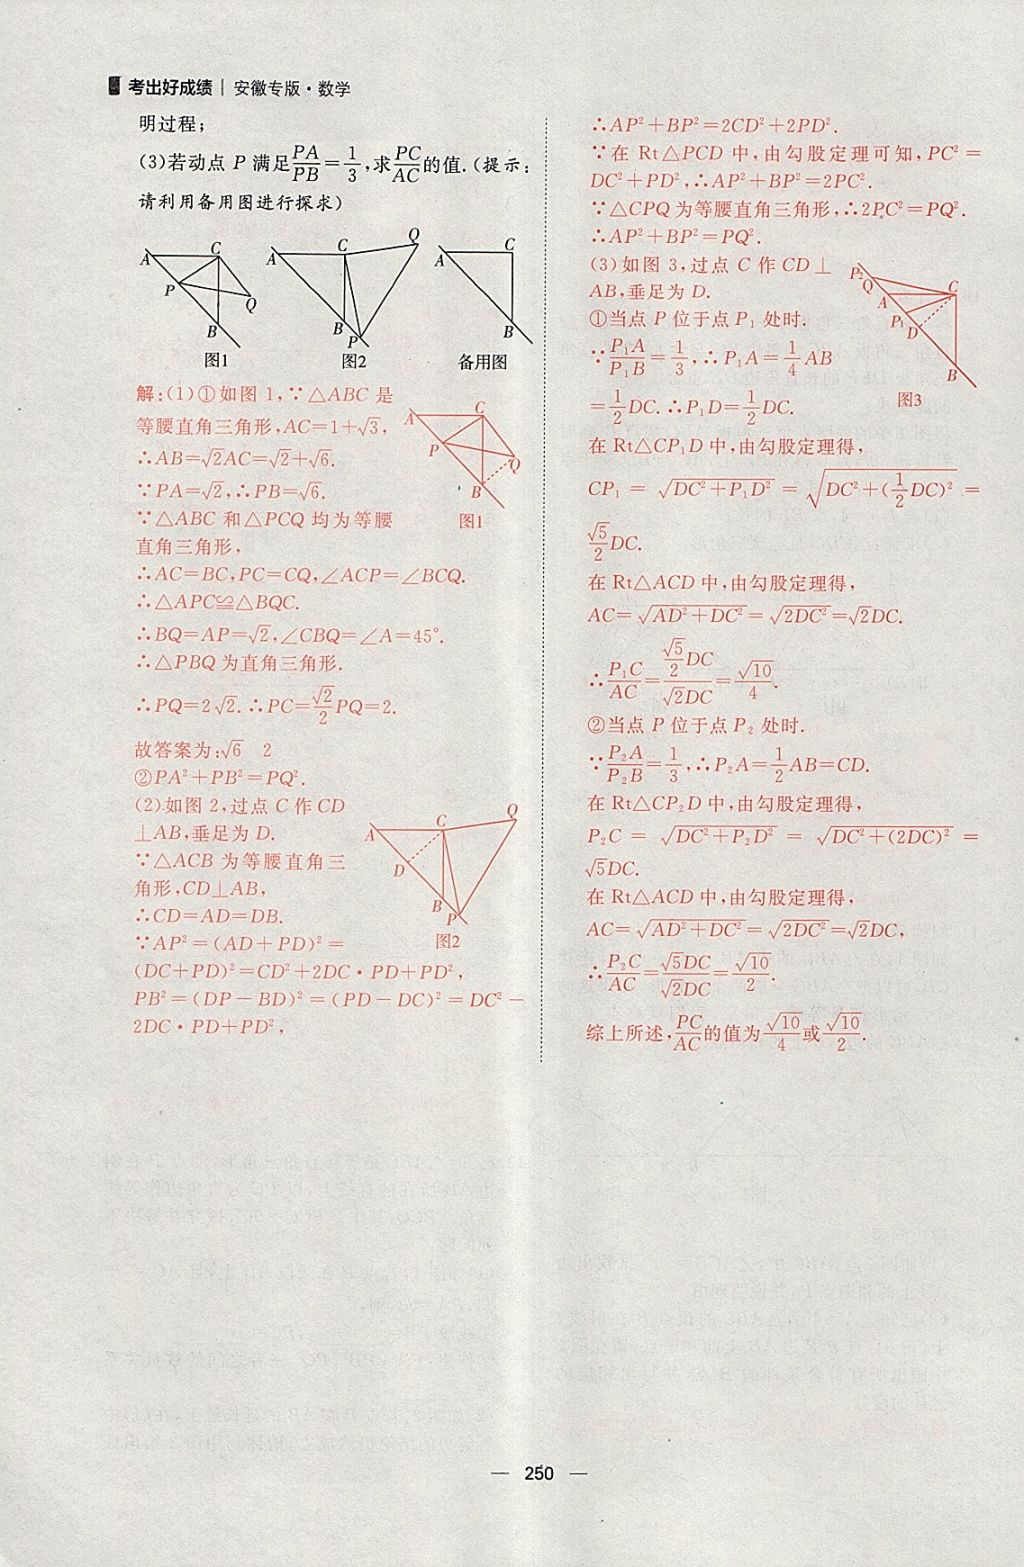 考出好成绩 | 安徽专版·数学
明过程;
(3)若动点 P 满足PA/PB=1/3,求PC/AC的值.(提示:
请利用备用图进行探求)
A C P Q B
图1
A C Q B P
图2
A C B
备用图
解:(1)①如图 1,∵△ABC 是
等腰直角三角形,AC=1+√3,
∴AB=√2AC=√2+√6.
∵PA=√2,∴PB=√6.
∵△ABC 和△PCQ 均为等腰
直角三角形,
A C P Q B
图1
∴AC=BC,PC=CQ,∠ACP=∠BCQ.
∴△APC≌△BQC.
∴BQ=AP=√2,∠CBQ=∠A=45°.
∴△PBQ 为直角三角形.
∴PQ=2√2.∴PC=√2/2PQ=2.
故答案为:√6 2
②PA²+PB²=PQ².
(2)如图 2,过点 C 作 CD
⊥AB,垂足为 D.
∵△ACB 为等腰直角三
角形,CD⊥AB,
∴CD=AD=DB.
∵AP²=(AD+PD)²=
A C Q D B P
图2
(DC+PD)²=CD²+2DC·PD+PD²,
PB²=(DP-BD)²=(PD-DC)²=DC²-
2DC·PD+PD²,
∴AP²+BP²=2CD²+2PD².
∵在 Rt△PCD 中,由勾股定理可知,PC²=
DC²+PD²,∴AP²+BP²=2PC².
∵△CPQ 为等腰直角三角形,∴2PC²=PQ².
∴AP²+BP²=PQ².
(3)如图 3,过点 C 作 CD⊥
AB,垂足为 D.
①当点 P 位于点 P₁ 处时.
∵P₁A/P₁B=1/3,∴P₁A=1/4AB
=1/2DC.∴P₁D=1/2DC.
P₂ Q A C P₁ D B
图3
在 Rt△CP₁D 中,由勾股定理得,
CP₁=√(DC²+P₁D²)=√(DC²+(1/2DC)²)=
√5/2DC.
在 Rt△ACD 中,由勾股定理得,
AC=√(AD²+DC²)=√(2DC²)=√2DC.
∴P₁C/AC=(√5/2DC)/(√2DC)=√10/4.
②当点 P 位于点 P₂ 处时.
∵P₂A/P₂B=1/3,∴P₂A=1/2AB=CD.
在 Rt△CP₂D 中,由勾股定理得,
P₂C=√(DC²+P₂D²)=√(DC²+(2DC)²)=
√5DC.
在 Rt△ACD 中,由勾股定理得,
AC=√(AD²+DC²)=√(2DC²)=√2DC,
∴P₂C/AC=√5DC/√2DC=√10/2.
综上所述,PC/AC的值为√10/4或√10/2.
— 250 —